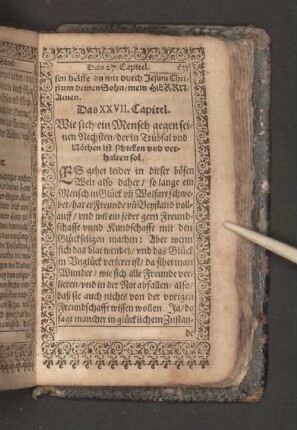 Das 27. Capitel.
sen helffe vn mit durch Jesum Chri-
stum deinen Sohn/mein HERRN
Amen.
Das XXVII. Capitel.
Wie sich ein Mensch gegen sei-
nen Nechsten/der in Trübsal vnd
Nöthen ist schicken vnd ver-
halten sol.
ES gehet leider in dieser bösen
Welt also daher/ so lange ein
Mensch in Glück vñ Wolfart schwe-
bet/hat er Freunde vñ Beystand voll-
auff/ vnd wil ein jeder gern Freund-
schafft vnnd Kundschafft mit den
Glückseligen machen: Aber wenn
sich das blat wendet/ vnd das Glück
in Vnglück verkeret ist/ da sihet man
Wunder/ wie sich alle Freunde ver-
lieren/vnd in der Not abfallen/ also/
daß sie auch nichts von der vorigen
Freundschafft wissen wollen Ja/ da
sagt mancher in glücklichem Zustan-
de